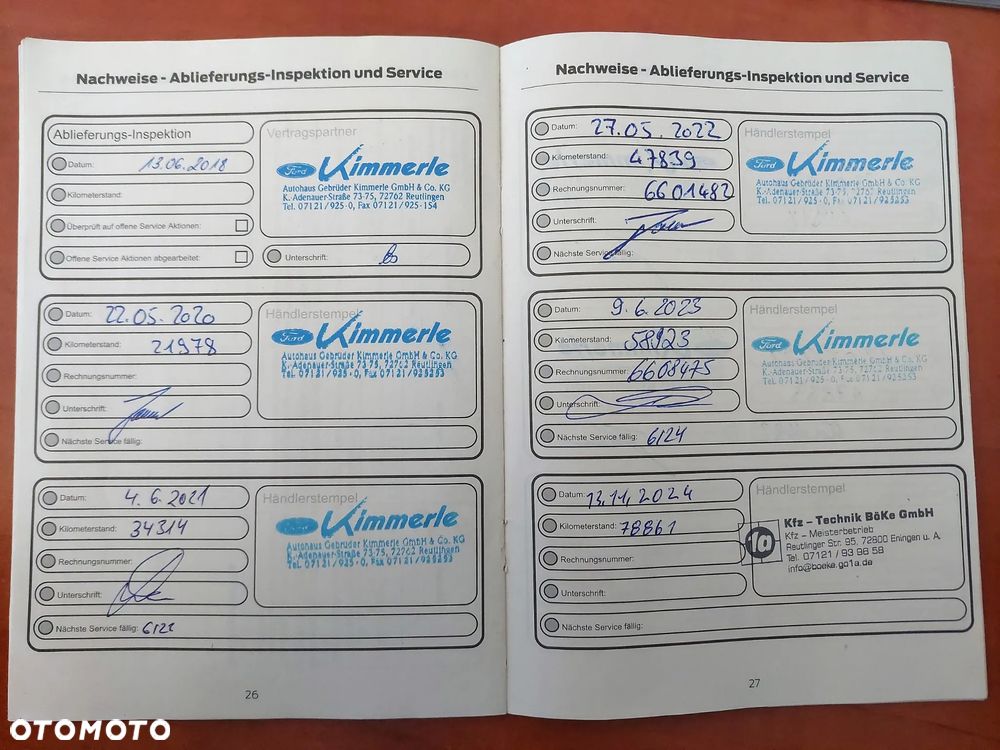 Nachweise - Ablieferungs-Inspektion und Service
Ablieferungs-Inspektion
Datum: 13.06.2018
Kilometerstand:
Überprüft auf offene Service Aktionen:
Offene Service Aktionen abgearbeitet:
Vertragspartner
Ford Kimmerle
Autohaus Gebrüder Kimmerle GmbH & Co. KG
K.-Adenauer-Straße 73-75, 72762 Reutlingen
Tel. 07121/925-0, Fax 07121/925-154
Unterschrift:
Datum: 22.05.2020
Kilometerstand: 21978
Rechnungsnummer:
Unterschrift:
Nächste Service fällig:
Händlerstempel
Ford Kimmerle
Autohaus Gebrüder Kimmerle GmbH & Co. KG
K.-Adenauer-Straße 73-75, 72762 Reutlingen
Tel. 07121/925-0, Fax 07121/925253
Datum: 4.6.2021
Kilometerstand: 34314
Rechnungsnummer:
Unterschrift:
Nächste Service fällig: 6/22
Händlerstempel
Ford Kimmerle
Autohaus Gebrüder Kimmerle GmbH & Co. KG
K.-Adenauer-Straße 73-75, 72762 Reutlingen
Tel. 07121/925-0, Fax 07121/925253
26
Nachweise - Ablieferungs-Inspektion und Service
Datum: 27.05.2022
Kilometerstand: 47839
Rechnungsnummer: 6601482
Unterschrift:
Nächste Service fällig:
Händlerstempel
Ford Kimmerle
Autohaus Gebrüder Kimmerle GmbH & Co. KG
K.-Adenauer-Straße 73-75, 72762 Reutlingen
Tel. 07121/925-0, Fax 07121/925253
Datum: 9.6.2023
Kilometerstand: 58923
Rechnungsnummer: 6608475
Unterschrift:
Nächste Service fällig: 6/24
Händlerstempel
Ford Kimmerle
Autohaus Gebrüder Kimmerle GmbH & Co. KG
K.-Adenauer-Straße 73-75, 72762 Reutlingen
Tel. 07121/925-0, Fax 07121/925253
Datum: 13.11.2024
Kilometerstand: 78861
Rechnungsnummer:
Unterschrift:
Nächste Service fällig:
Händlerstempel
Kfz - Technik BöKe GmbH
Kfz - Meisterbetrieb
Reutlinger Str. 95, 72800 Eningen u. A.
Tel. 07121 / 93 98 58
info@boeke.go1a.de
27
OTOMOTO